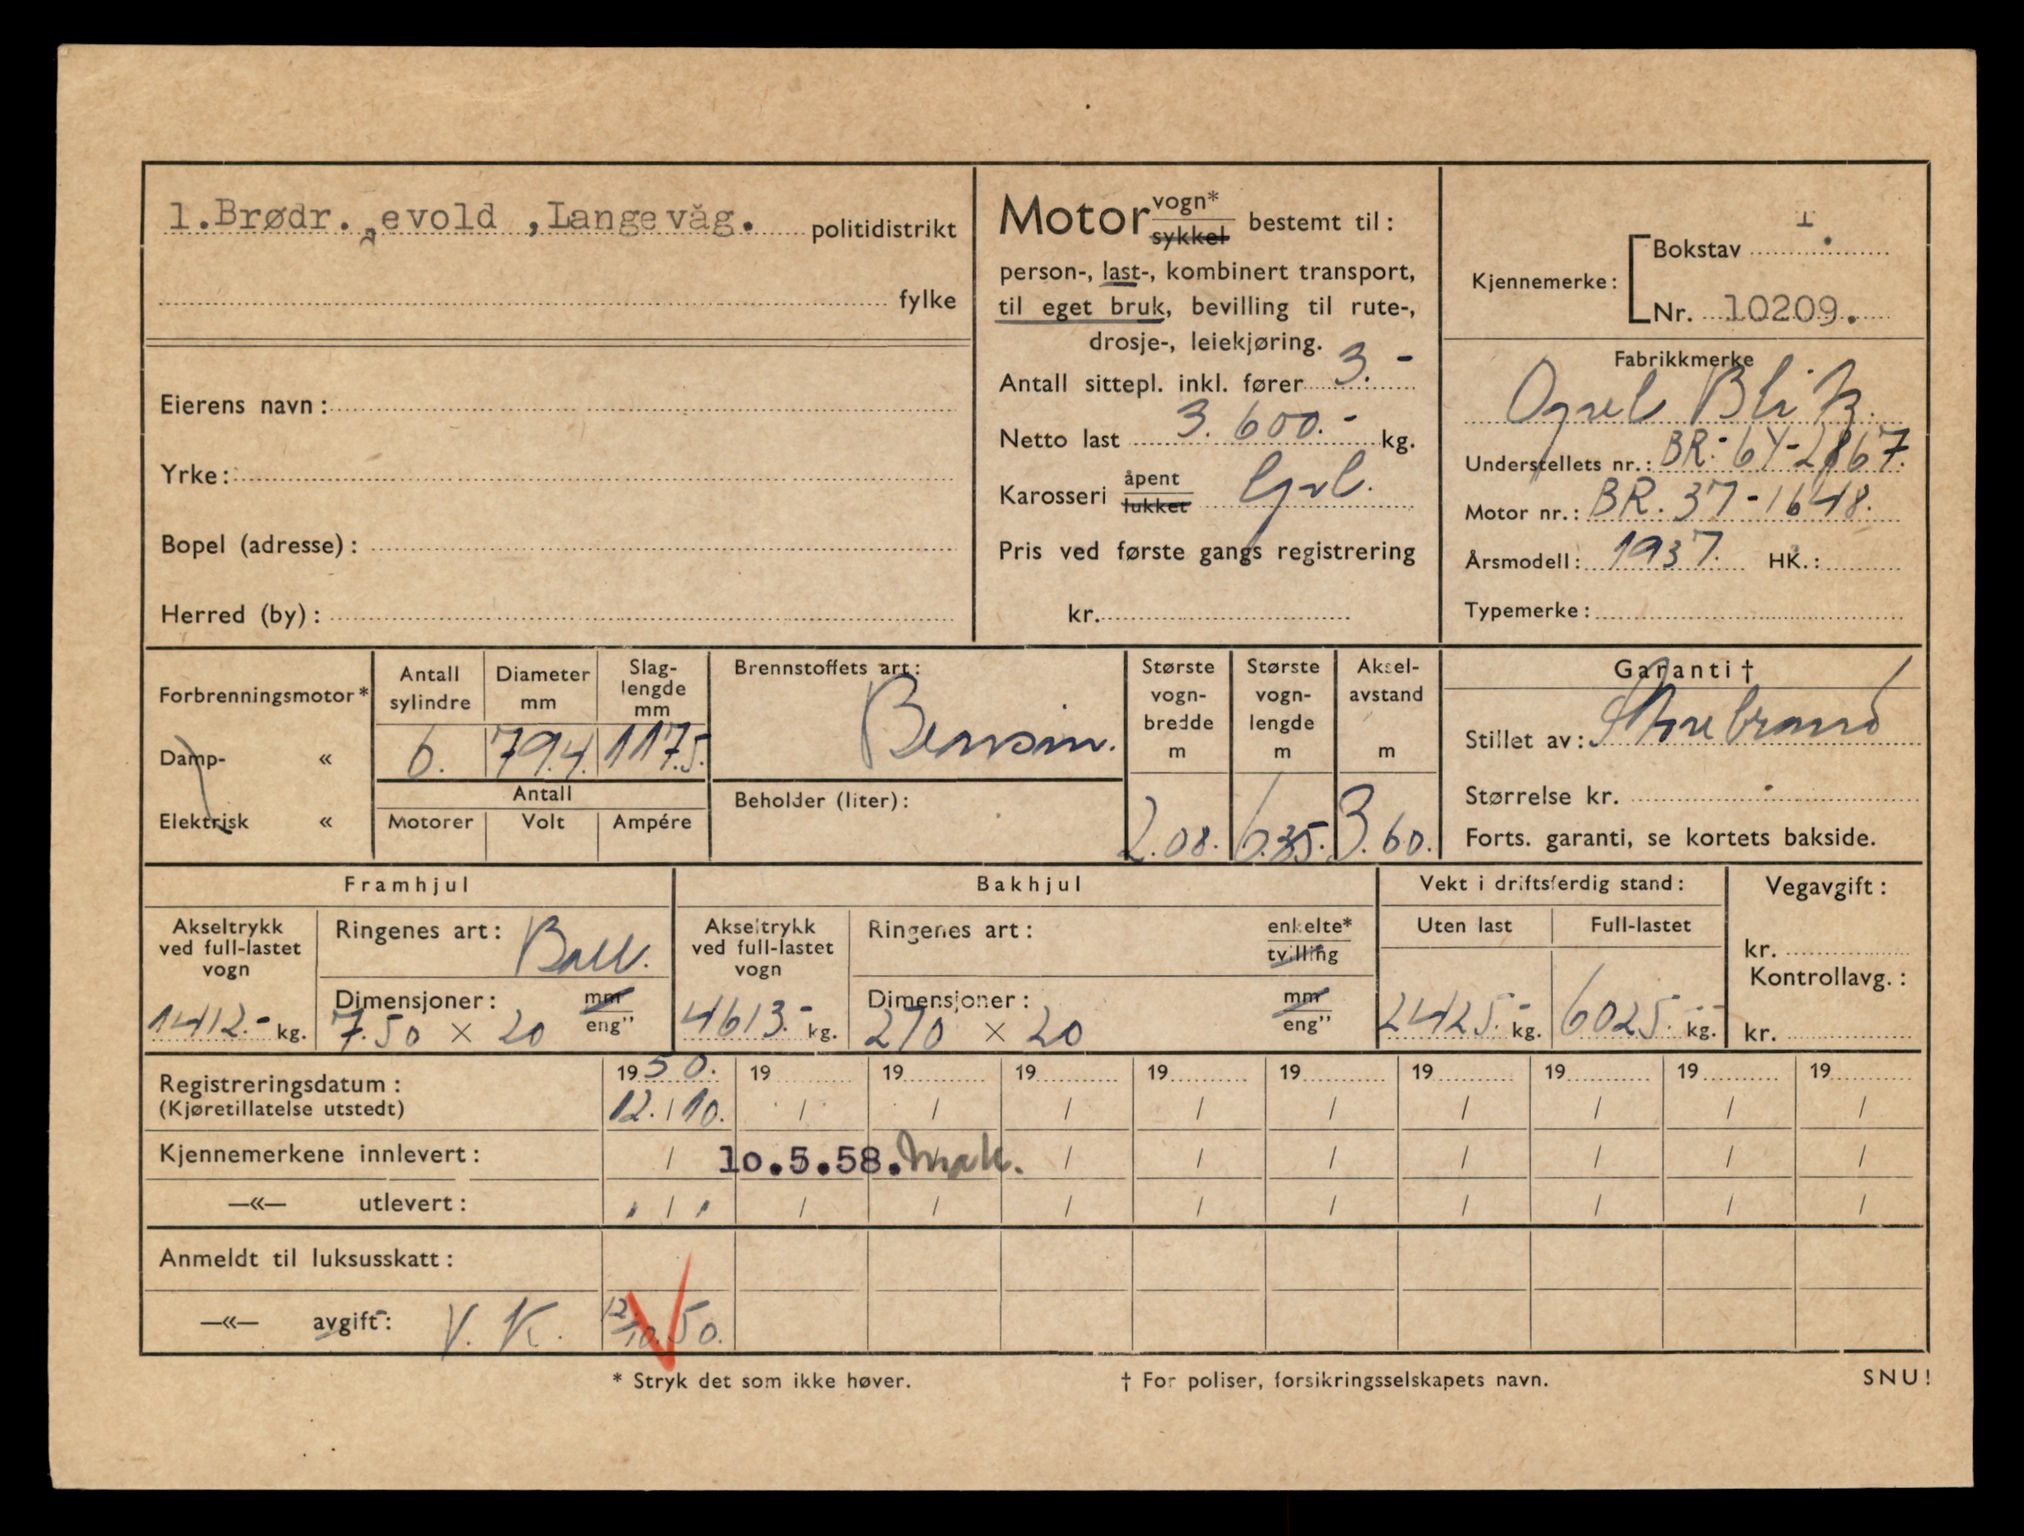 1.Brødr. evold ,Langevåg. politidistrikt
fylke
Eierens navn:
Yrke:
Bopel (adresse):
Herred (by):
Motor vogn* sykkel bestemt til:
person-, last-, kombinert transport,
til eget bruk, bevilling til rute-,
drosje-, leiekjøring.
Antall sittepl. inkl. fører 3.-
Netto last 3.600.- kg.
Karosseri åpent lukket
Pris ved første gangs registrering
kr.
Kjennemerke:
Bokstav T.
Nr. 10209.
Fabrikkmerke
Opel Blitz.
Understellets nr.: BR.-6Y-2867.
Motor nr.: BR. 37-1648.
Årsmodell: 1937. HK.:
Typemerke:
Forbrenningsmotor*
Damp- «
Elektrisk «
Antall sylindre
6.
Diameter mm
79.4.
Slag-lengde mm
117.5.
Antall
Motorer Volt Ampére
Brennstoffets art:
Bensin.
Beholder (liter):
Største vogn-bredde m
2.08.
Største vogn-lengde m
6.35.
Aksel-avstand m
3.60.
Garanti †
Stillet av: Storebrand
Størrelse kr.
Forts. garanti, se kortets bakside.
Framhjul
Akseltrykk ved full-lastet vogn
1412.- kg.
Ringenes art: Ball.
Dimensjoner: mm eng"
7.50 × 20
Bakhjul
Akseltrykk ved full-lastet vogn
4613.- kg.
Ringenes art: enkelte* tvilling
Dimensjoner: mm eng"
270 × 20
Vekt i driftsferdig stand:
Uten last Full-lastet
2425.- kg. 6025.- kg.
Vegavgift:
kr.
Kontrollavg.:
kr.
Registreringsdatum: 1950. 19 19 19 19 19 19 19 19 19
(Kjøretillatelse utstedt) 12./10. / / / / / / / / /
Kjennemerkene innlevert: / 10.5.58. / / / / / / /
—«— utlevert: / / / / / / / / / /
Anmeldt til luksusskatt:
—«— avgift: V. K. 12/10.50.
* Stryk det som ikke høver.
† For poliser, forsikringsselskapets navn.
SNU!